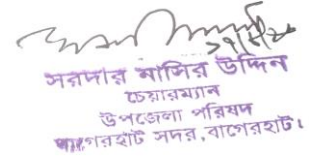 ২৭/৫/২৫
সরদার নাসির উদ্দিন
চেয়ারম্যান
উপজেলা পরিষদ
বাগেরহাট সদর, বাগেরহাট।